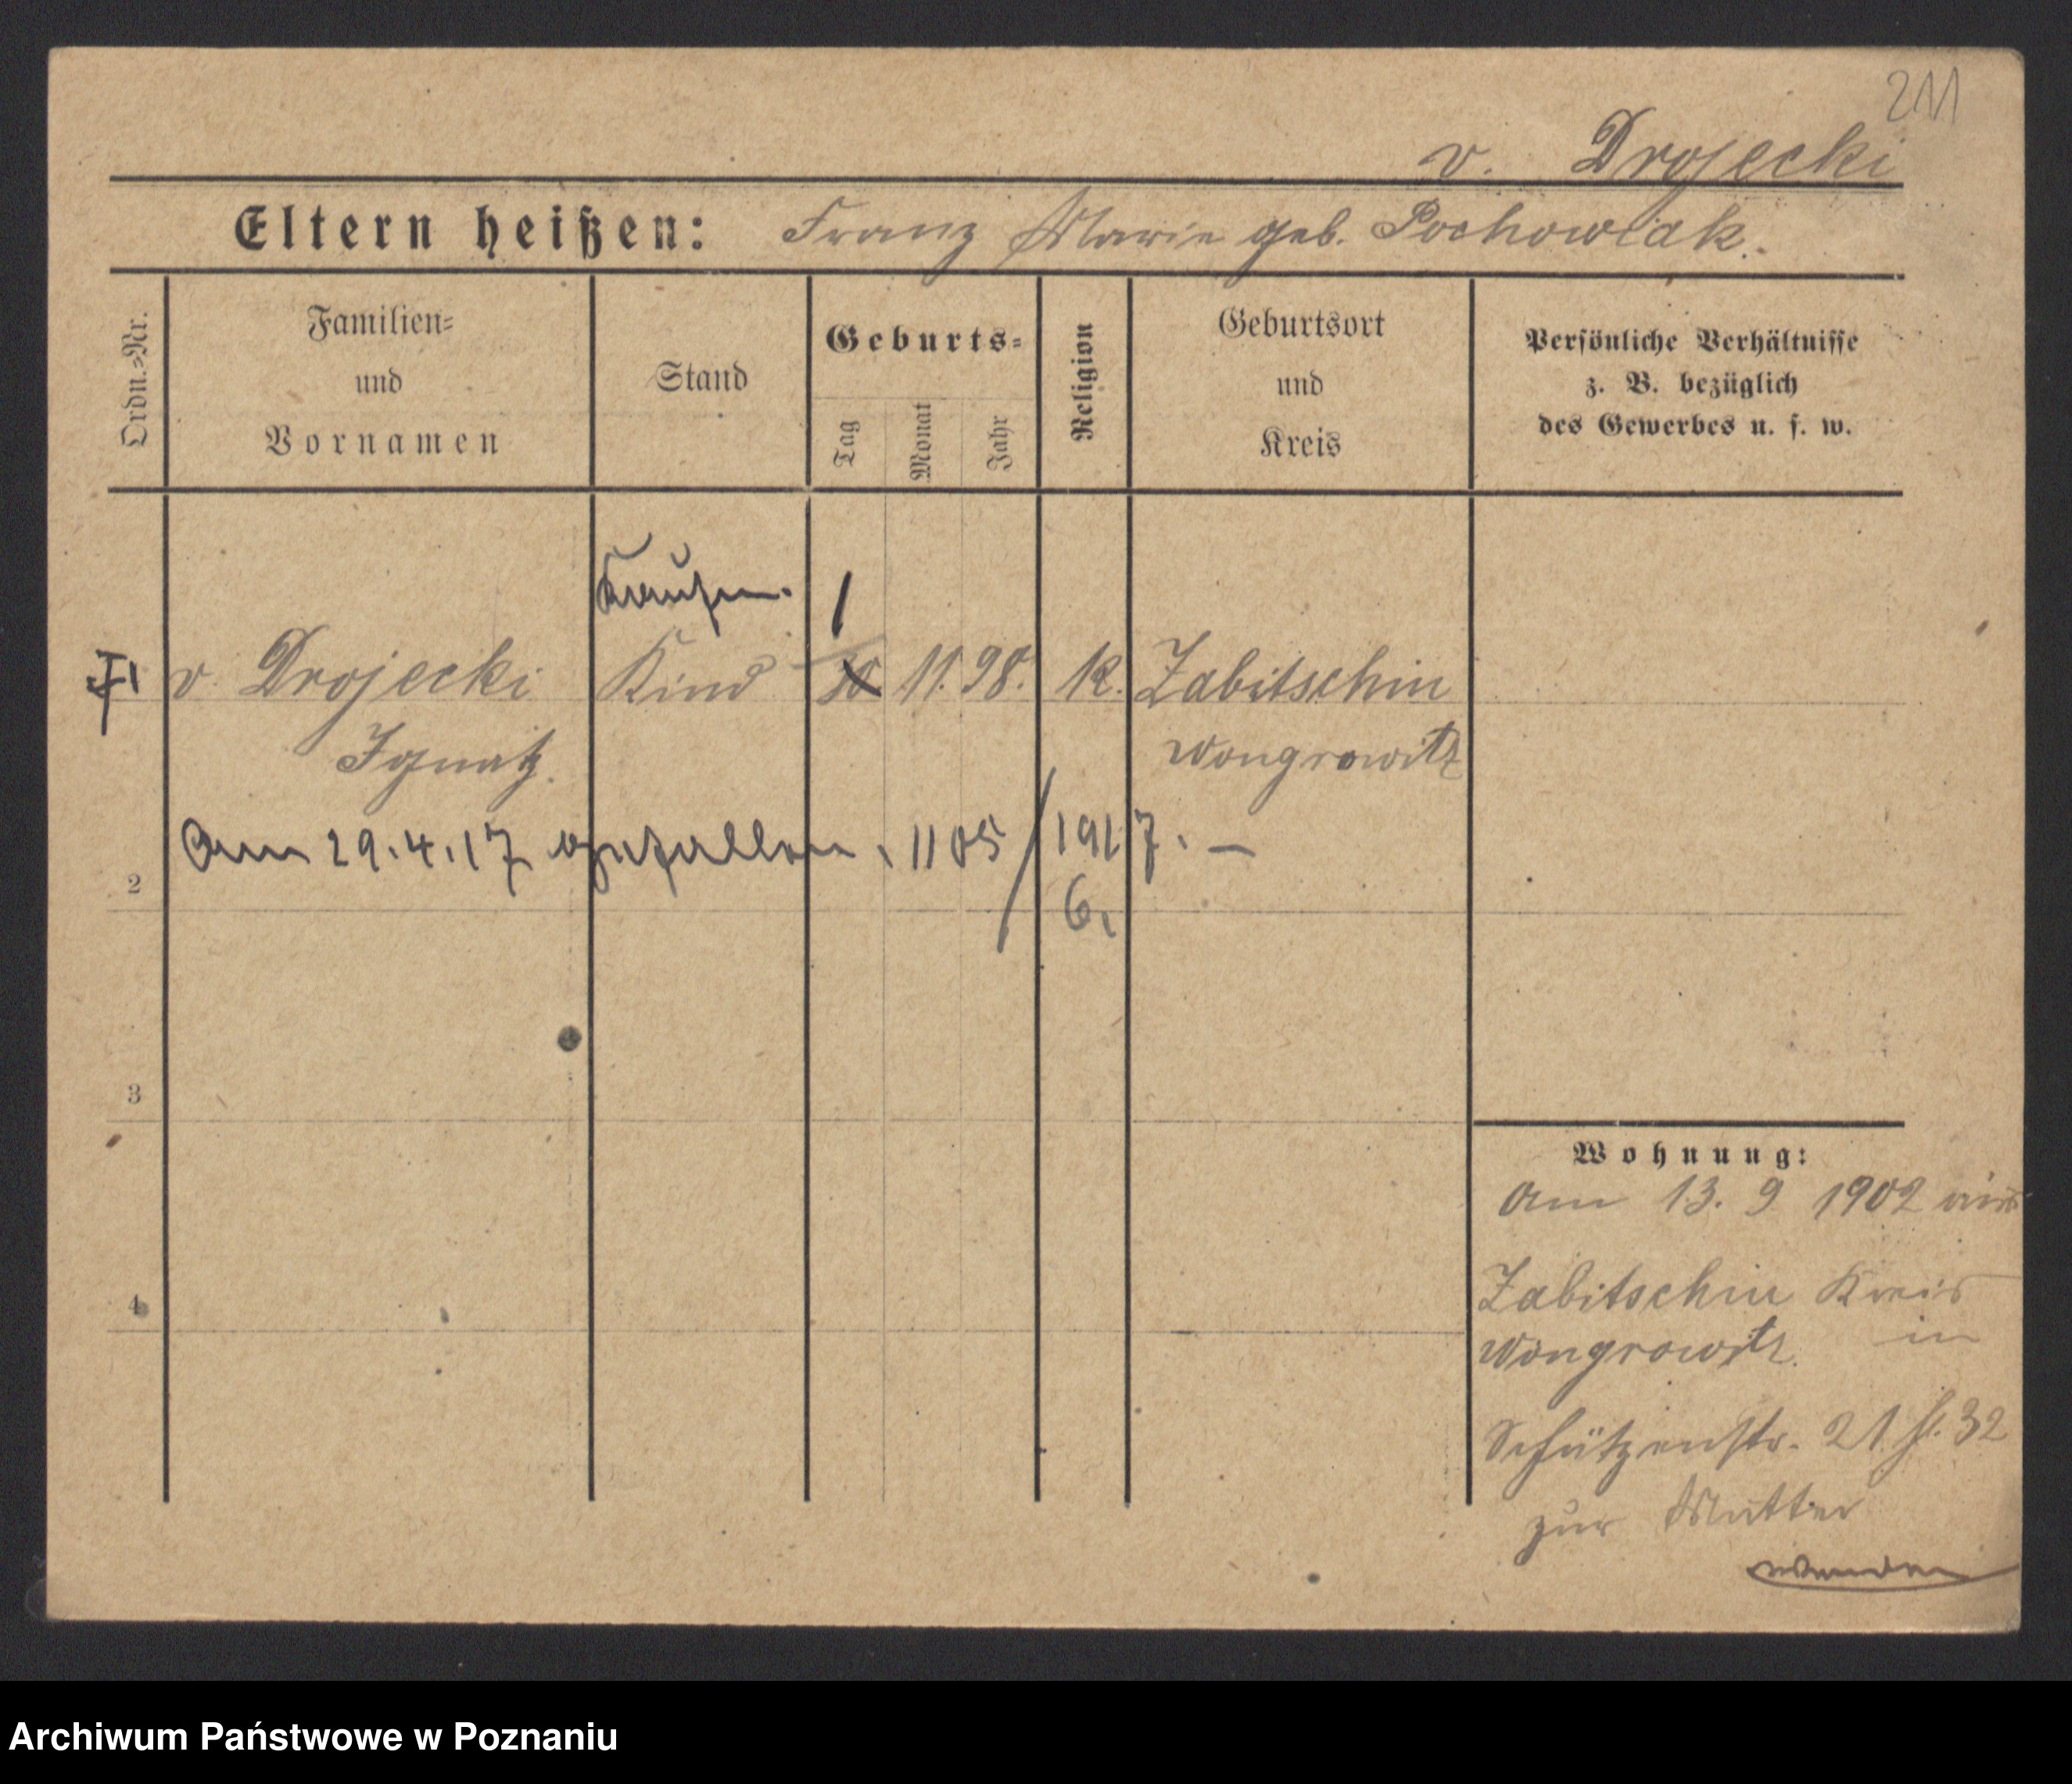 211
v. Drojecki
Eltern heißen: Franz Marie geb. Pochowiak.
Ordn.=Nr.
Familien=
und
Vornamen
Stand
Geburts=
Tag
Monat
Jahr
Religion
Geburtsort
und
Kreis
Persönliche Verhältnisse
z. B. bezüglich
des Gewerbes u. s. w.
Kaufm. 1
1 v. Drojecki Kind 11. 98. K. Zabitschin
Ignatz. Wongrowitz
Am 29.4.17 gefallen. 1105/1917. —
6.
2
3
4
Wohnung:
Am 13. 9 1902 aus
Zabitschin Kreis
Wongrowitz. in
Schützenstr. 21 H. 32
zur Mutter
wenden
Archiwum Państwowe w Poznaniu